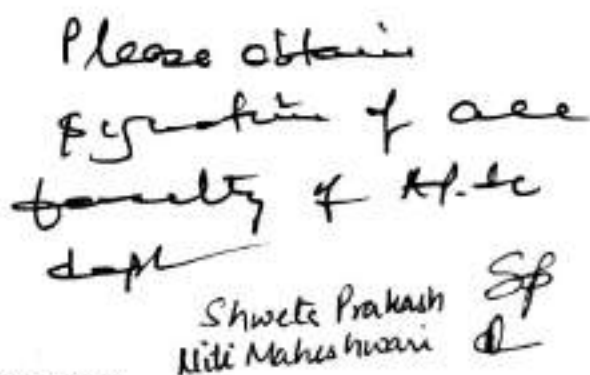 Please obtain
signature of all
faculty of Ap. Sc
deptt
Shweta Prakash SP
Niti Maheshwari